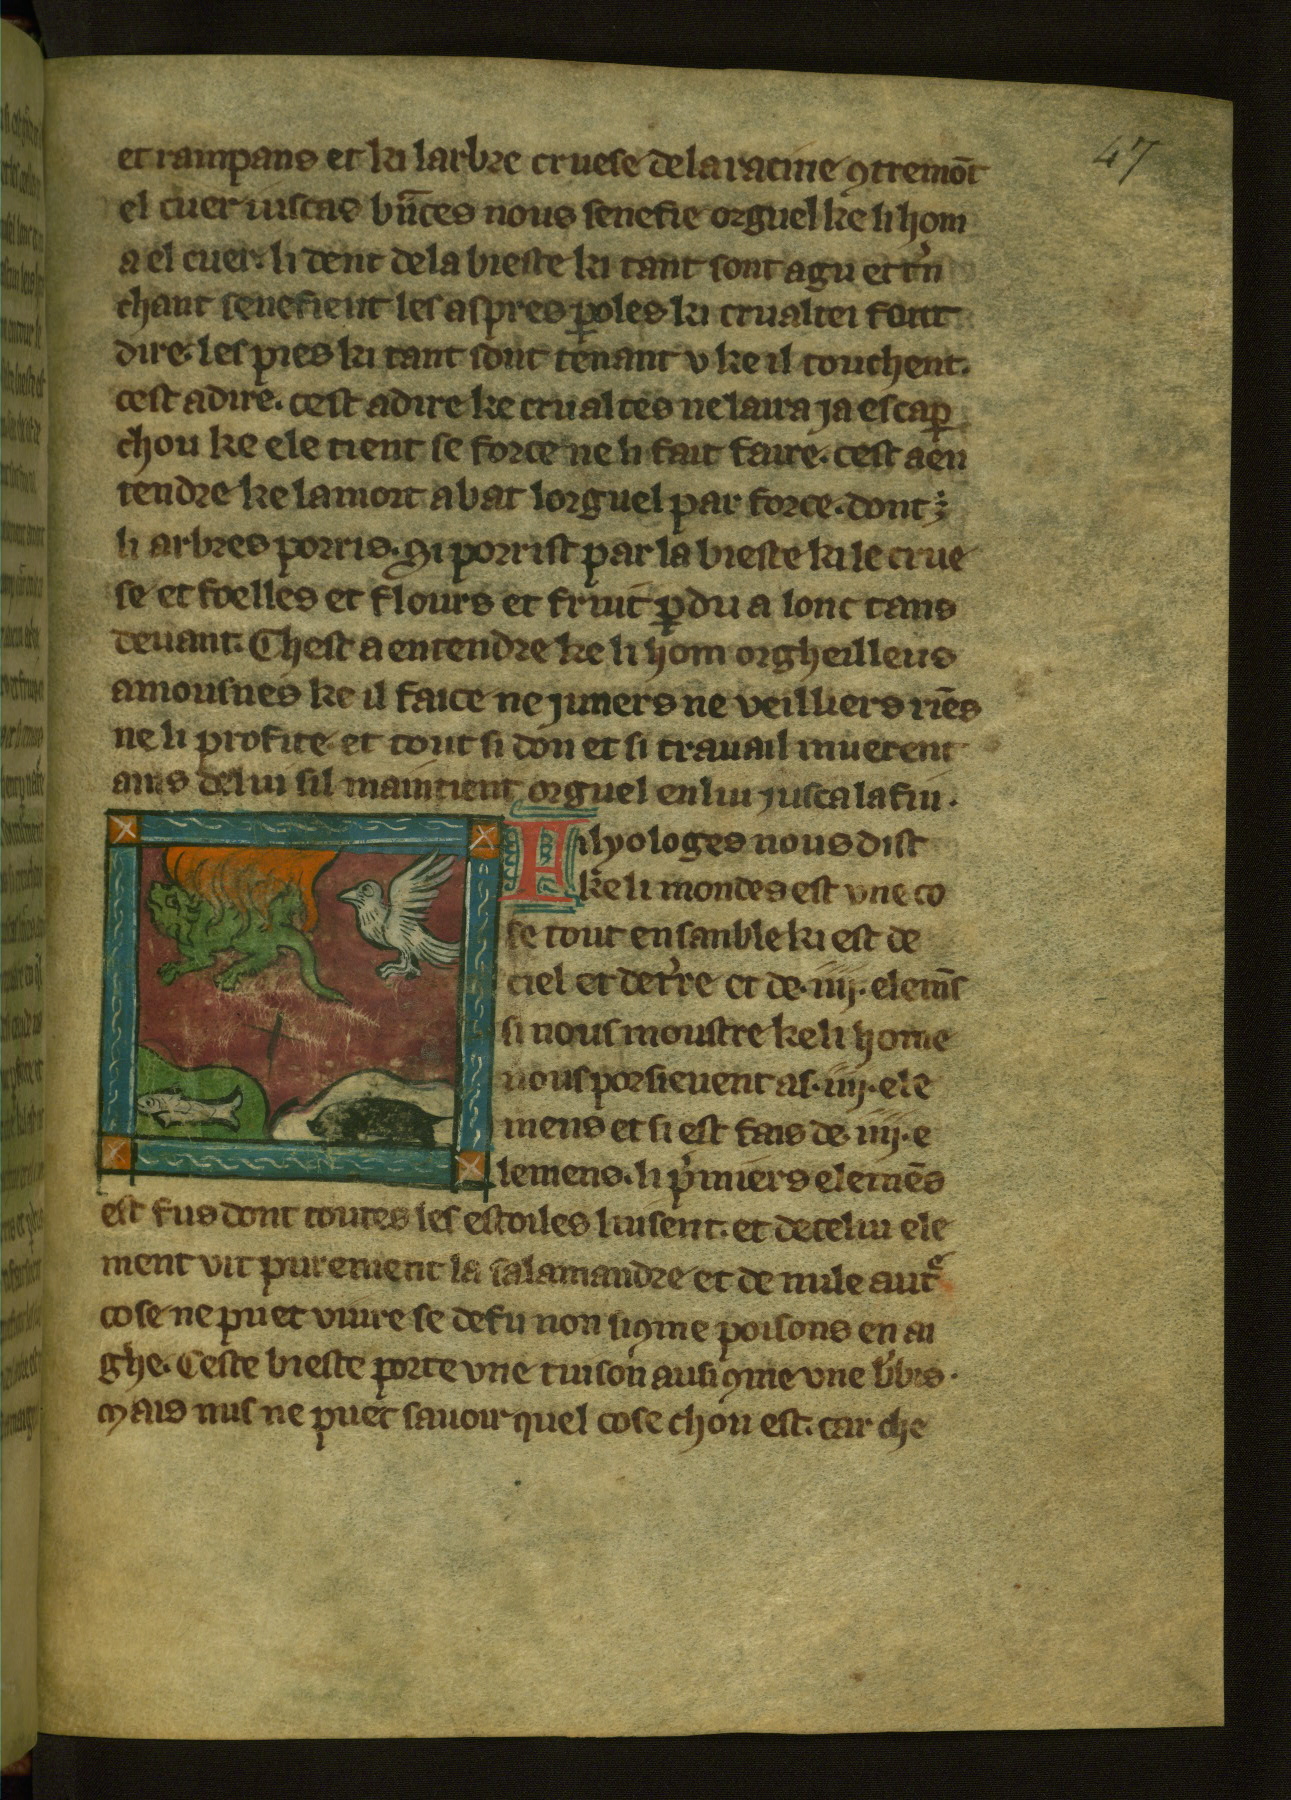 47
et rampans et ki larbre cruese de la racine ꝯtremōt
el cuer iuscas brᷓces nous senefie orguel ke li hom
a el cuer. li dent de la bieste ki tant sont agu et trᷓn
chant senefient les aspres ꝑoles ki crualtei font
dire. les pies ki tant sont tenant v ke il touchent.
cest adire. cest adire ke crualtes ne laira ja escaꝑ
chou ke ele tient se force ne li fait faire. cest a en
tendre ke la mort abat lorguel par force. dont ꝫ
li arbres porris. Qi porrist par la bieste ki le crue
se et foelles et flours et fruit ꝑdu a lonc tans
deuant. Chest a entendre ke li hom orgheilleus
amousnes ke il faice ne juners ne veilliers riēs
ne li profite et tout si don et si trauail muerent
ains de lui sil maintient orguel en lui jusca la fin.
Filyologes nous dist
ke li mondes est vne co
se tout ensanble ki est de
ciel et de tr̄re et de .iiij. elem̄s
si nous moustre ke li home
nous porsieuent as .iiij. ele
mens et si est fais de .iiij. e
lemens. li pͥmiers elemēs
est fus dont toutes les estoiles luisent. et de celui ele
ment vit purement la salamandre et de nule autͤ
cose ne puet viure se de fu non si ꝯme poisons en ai
ghe. Ceste bieste porte vne tuison ausi ꝯme vne br̄bis.
Mais nus ne puet sauoir quel cose chou est. car che